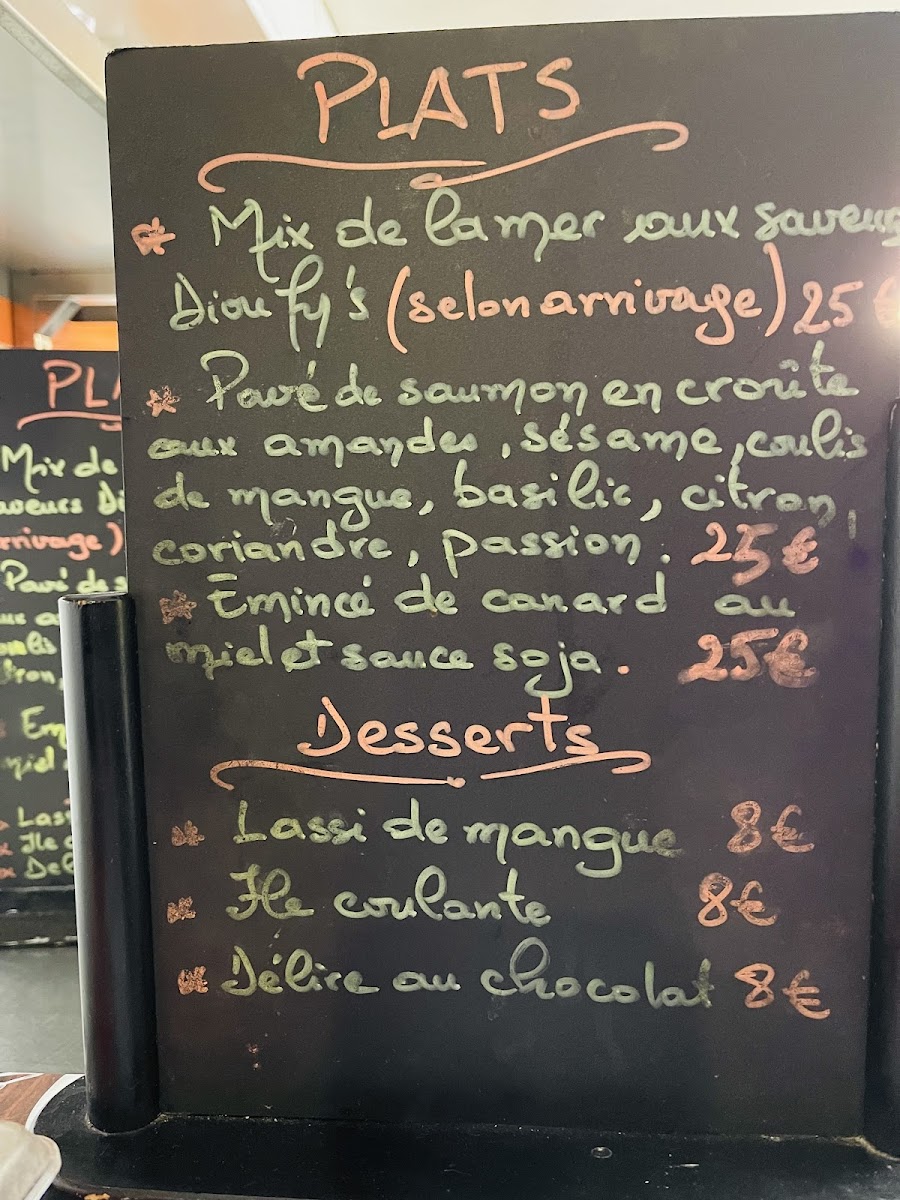 PLATS
Mix de la mer aux saveurs
Dioufy's (selon arrivage) 25 €
Pavé de saumon en croûte
aux amandes, sésame, coulis
de mangue, basilic, citron,
coriandre, passion. 25€
Emincé de canard au
miel et sauce soja. 25€
Desserts
Lassi de mangue 8€
Ile coulante 8€
Délire au chocolat 8€
PLA
Mix de
aveurs Di
rrivage)
Pavé de s
Em
miel
Lass
Ile c
Del